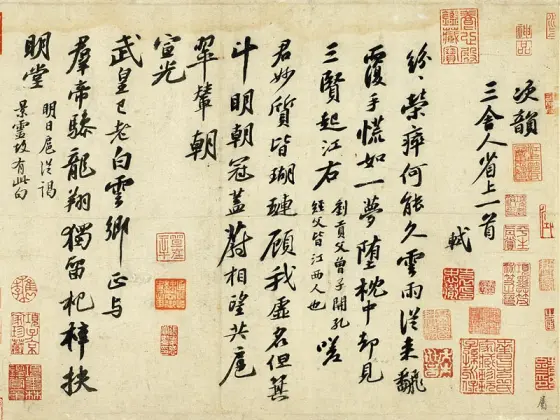 次韻
三舍人省上一首
軾
紛〻榮瘁何能久雲雨從來翻
覆手慌如一夢墮枕中却見
三賢起江右
劉貢父曾子開孔
經父皆江西人也
嗟
君妙質皆瑚璉顧我虛名但箕
斗明朝冠蓋蔚相望共扈
翠輦朝
宣光
武皇已老白雲鄉正與
羣帝驂龍翔獨留杞梓扶
明堂
明日扈從謁
景靈故有此句